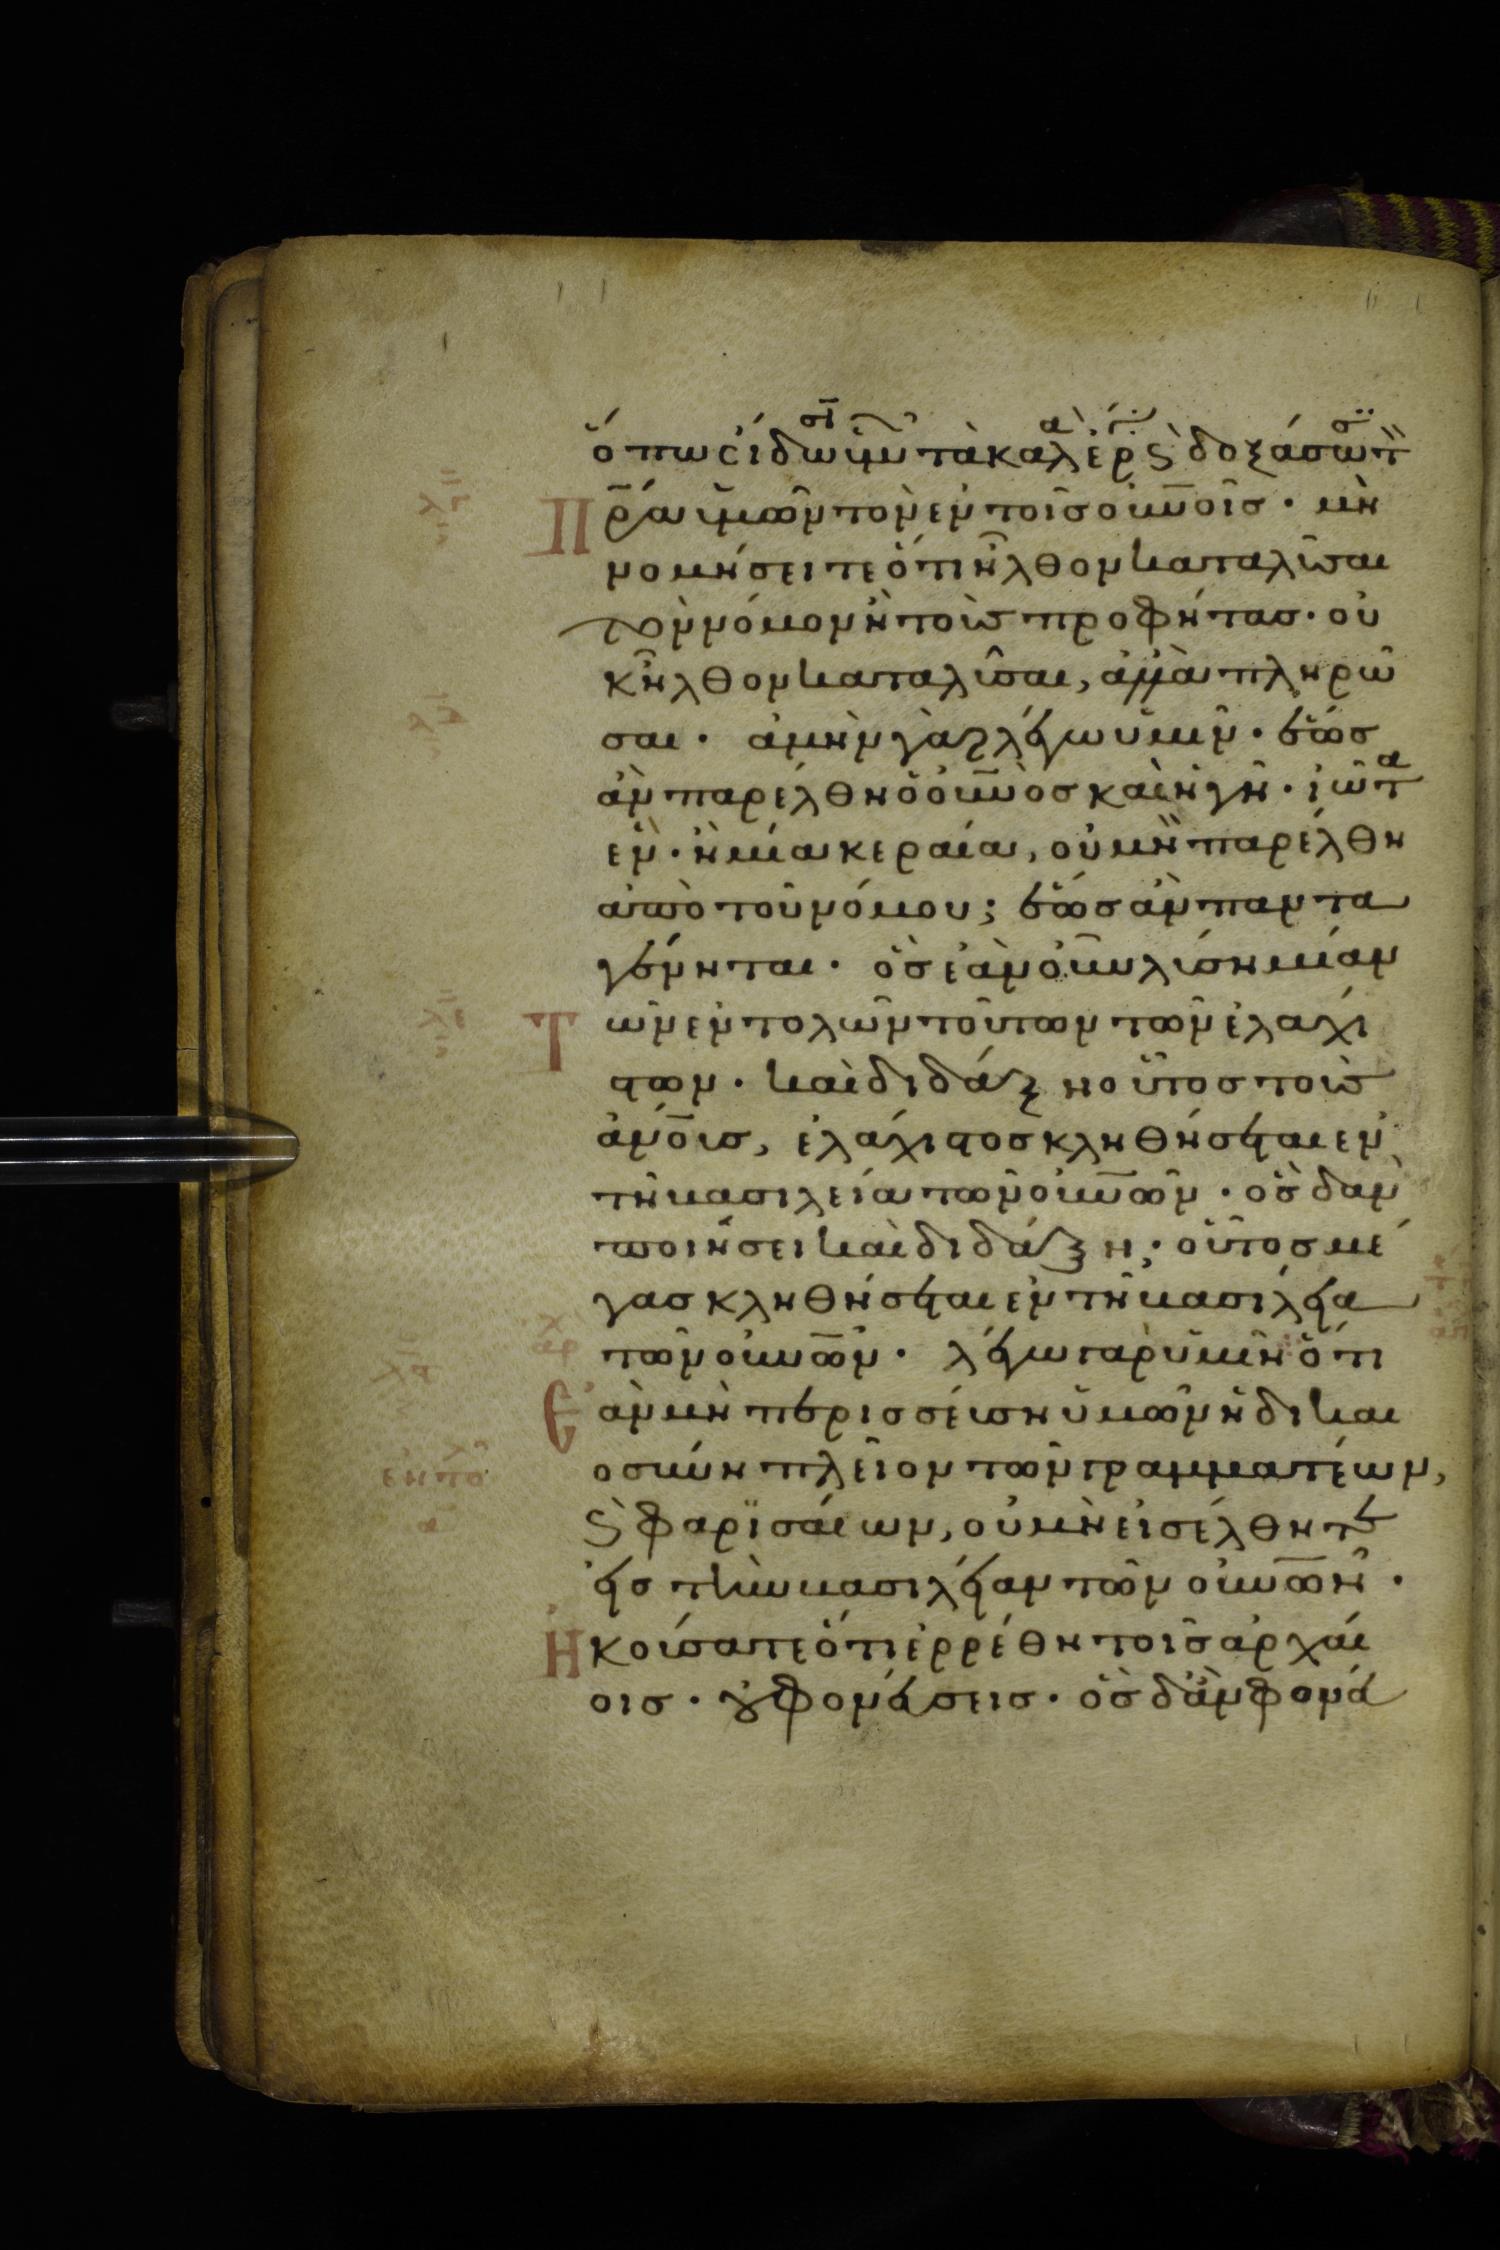 ὅπως ἴδωσιν ὑμῶν τὰ καλὰ ἔργα ϗ δοξάσωσι τὸν
Πρ̅α ὑμῶν τὸν ἐν τοῖς οὐν̅οῖς · μὴ
νομήσειτε ὅτι ἦλθον καταλῦσαι
τὸν νόμον ἢ τοὺς προφήτας · οὐ
κ ἦλθον καταλῦσαι, ἀλλὰ πληρῶ
σαι · ἀμὴν γὰρ λέγω ὑμῖν · ἕως
ἂν παρέλθη ὁ οὐν̅ὸς καὶ ἡ γῆ · ἰῶτα
ἓν · ἢ μία κεραία, οὐ μὴ παρέλθη
ἀπὸ τοῦ νόμου ; ἕως ἂν παντα
γένηται · ὃς ἐὰν οὖν λύση μίαν
Τῶν ἐντολῶν τούτων τῶν ἐλαχί
στων · καὶ διδάξη οὕτος τοὺς
ἀν̅οις, ἐλάχιστος κληθήσεται ἐν
τῆ βασιλεία τῶν οὐν̅ῶν · ὃς δ' ἂν
ποιήσει καὶ διδάξη · οὗτος μέ
γας κληθήσεται ἐν τῆ βασιλεία
τῶν οὐν̅ῶν · λέγω γὰρ ὑμῖν ὅτι
Ἐὰν μὴ περισσέυση ὑμῶν ἡ δικαι
οσύνη πλεῖον τῶν γραμματέων,
ϗ φαρϊσαίων, οὐ μὴ εἰσέλθητε
εἰς τὴν βασιλείαν τῶν οὐν̅ῶν ·
Ἠκούσατε ὅτι ἐρρέθη τοῖς ἀρχαί
οις · οὐ φονεύσεις · ὃς δ' ἂν φονεύ